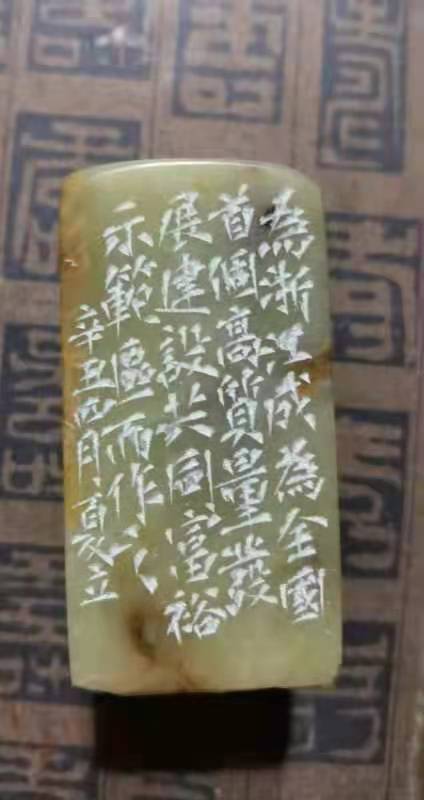 為浙江成為全國
首個高質量發
展建設共同富裕
示範區而作之
辛丑四月夏立